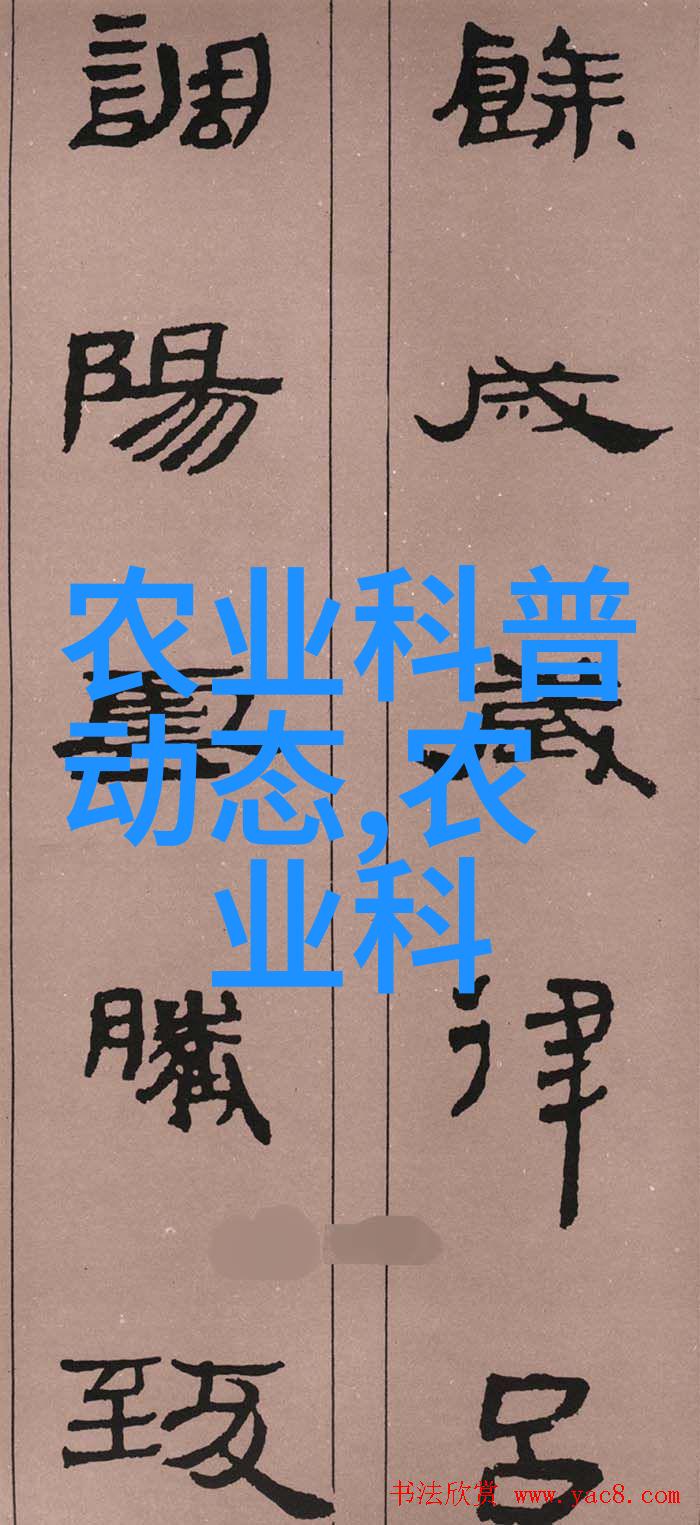 餘成歲律呂
調陽騰致
农业科普
动态,农业科
书法欣赏 www.yac8.com